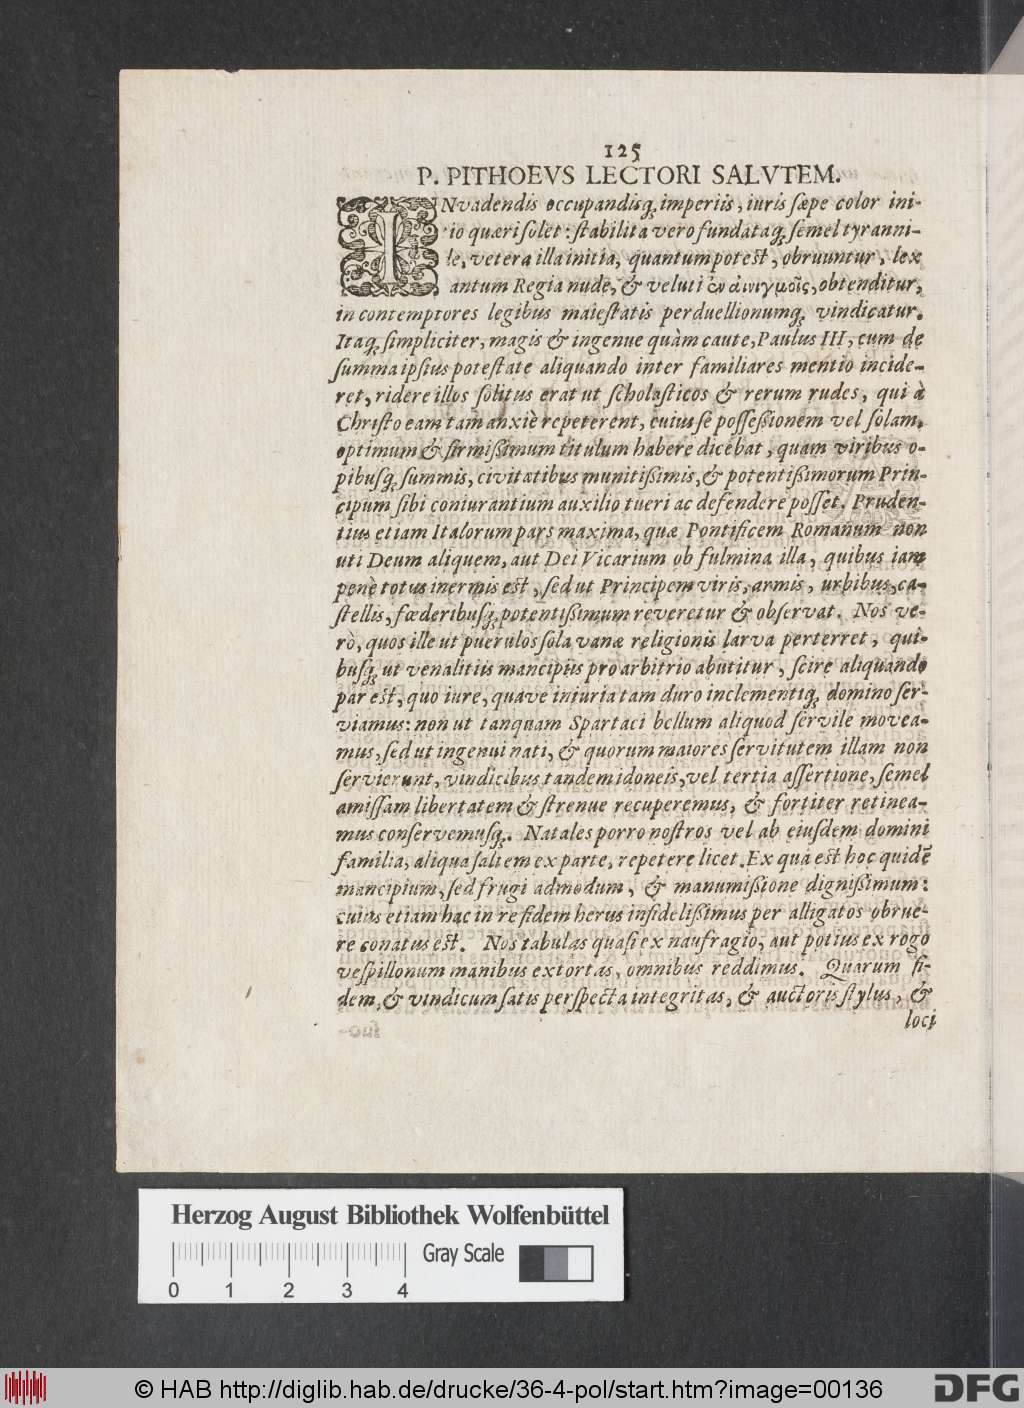 125
P. PITHOEVS LECTORI SALVTEM.
INvadendis occupandisq́; imperiis, iuris sæpe color ini-
tio quæri solet: stabilita vero fundataq́; semel tyranni-
de, vetera illa initia, quantum potest, obruuntur, lex
tantum Regia nude, & veluti ἐν ἀινιγμοῖς, obtenditur,
in contemptores legibus maiestatis perduellionumq́; vindicatur.
Itaq́; simpliciter, magis & ingenue quàm caute, Paulus III, cum de
summa ipsius potestate aliquando inter familiares mentio incide-
ret, ridere illos solitus erat ut scholasticos & rerum rudes, qui à
Christo eam tam anxiè repeterent, cuius se possessionem vel solam,
optimum & firmißimum titulum habere dicebat, quam viribus o-
pibusq́; summis, civitatibus munitißimis, & potentißimorum Prin-
cipum sibi coniurantium auxilio tueri ac defendere posset. Pruden-
tius etiam Italorum pars maxima, quæ Pontificem Romanum non
uti Deum aliquem, aut Dei Vicarium ob fulmina illa, quibus iam
penè totus inermis est, sed ut Principem viris, armis, urbibus, ca-
stellis, fœderibusq́; potentißimum reveretur & observat. Nos ve-
rò, quos ille ut puerulos sola vanæ religionis larva perterret, qui-
busq́; ut venalitiis mancipiis pro arbitrio abutitur, scire aliquando
par est, quo iure, quave iniuria tam duro inclementiq́; domino ser-
viamus: non ut tanquam Spartaci bellum aliquod servile movea-
mus, sed ut ingenui nati, & quorum maiores servitutem illam non
servierunt, vindicibus tandem idoneis, vel tertia assertione, semel
amissam libertatem & strenue recuperemus, & fortiter retinea-
mus conservemusq́;. Natales porro nostros vel ab eiusdem domini
familia, aliqua saltem ex parte, repetere licet. Ex qua est hoc quidē
mancipium, sed frugi admodum, & manumißione dignißimum:
cuius etiam hac in re fidem herus infidelißimus per alligatos obrue-
re conatus est. Nos tabulas quasi ex naufragio, aut potius ex rogo
vespillonum manibus extortas, omnibus reddimus. Quarum fi-
dem, & vindicum satis perspecta integritas, & auctoris stylus, &
loci
Herzog August Bibliothek Wolfenbüttel
Gray Scale
0 1 2 3 4
© HAB http://diglib.hab.de/drucke/36-4-pol/start.htm?image=00136
DFG